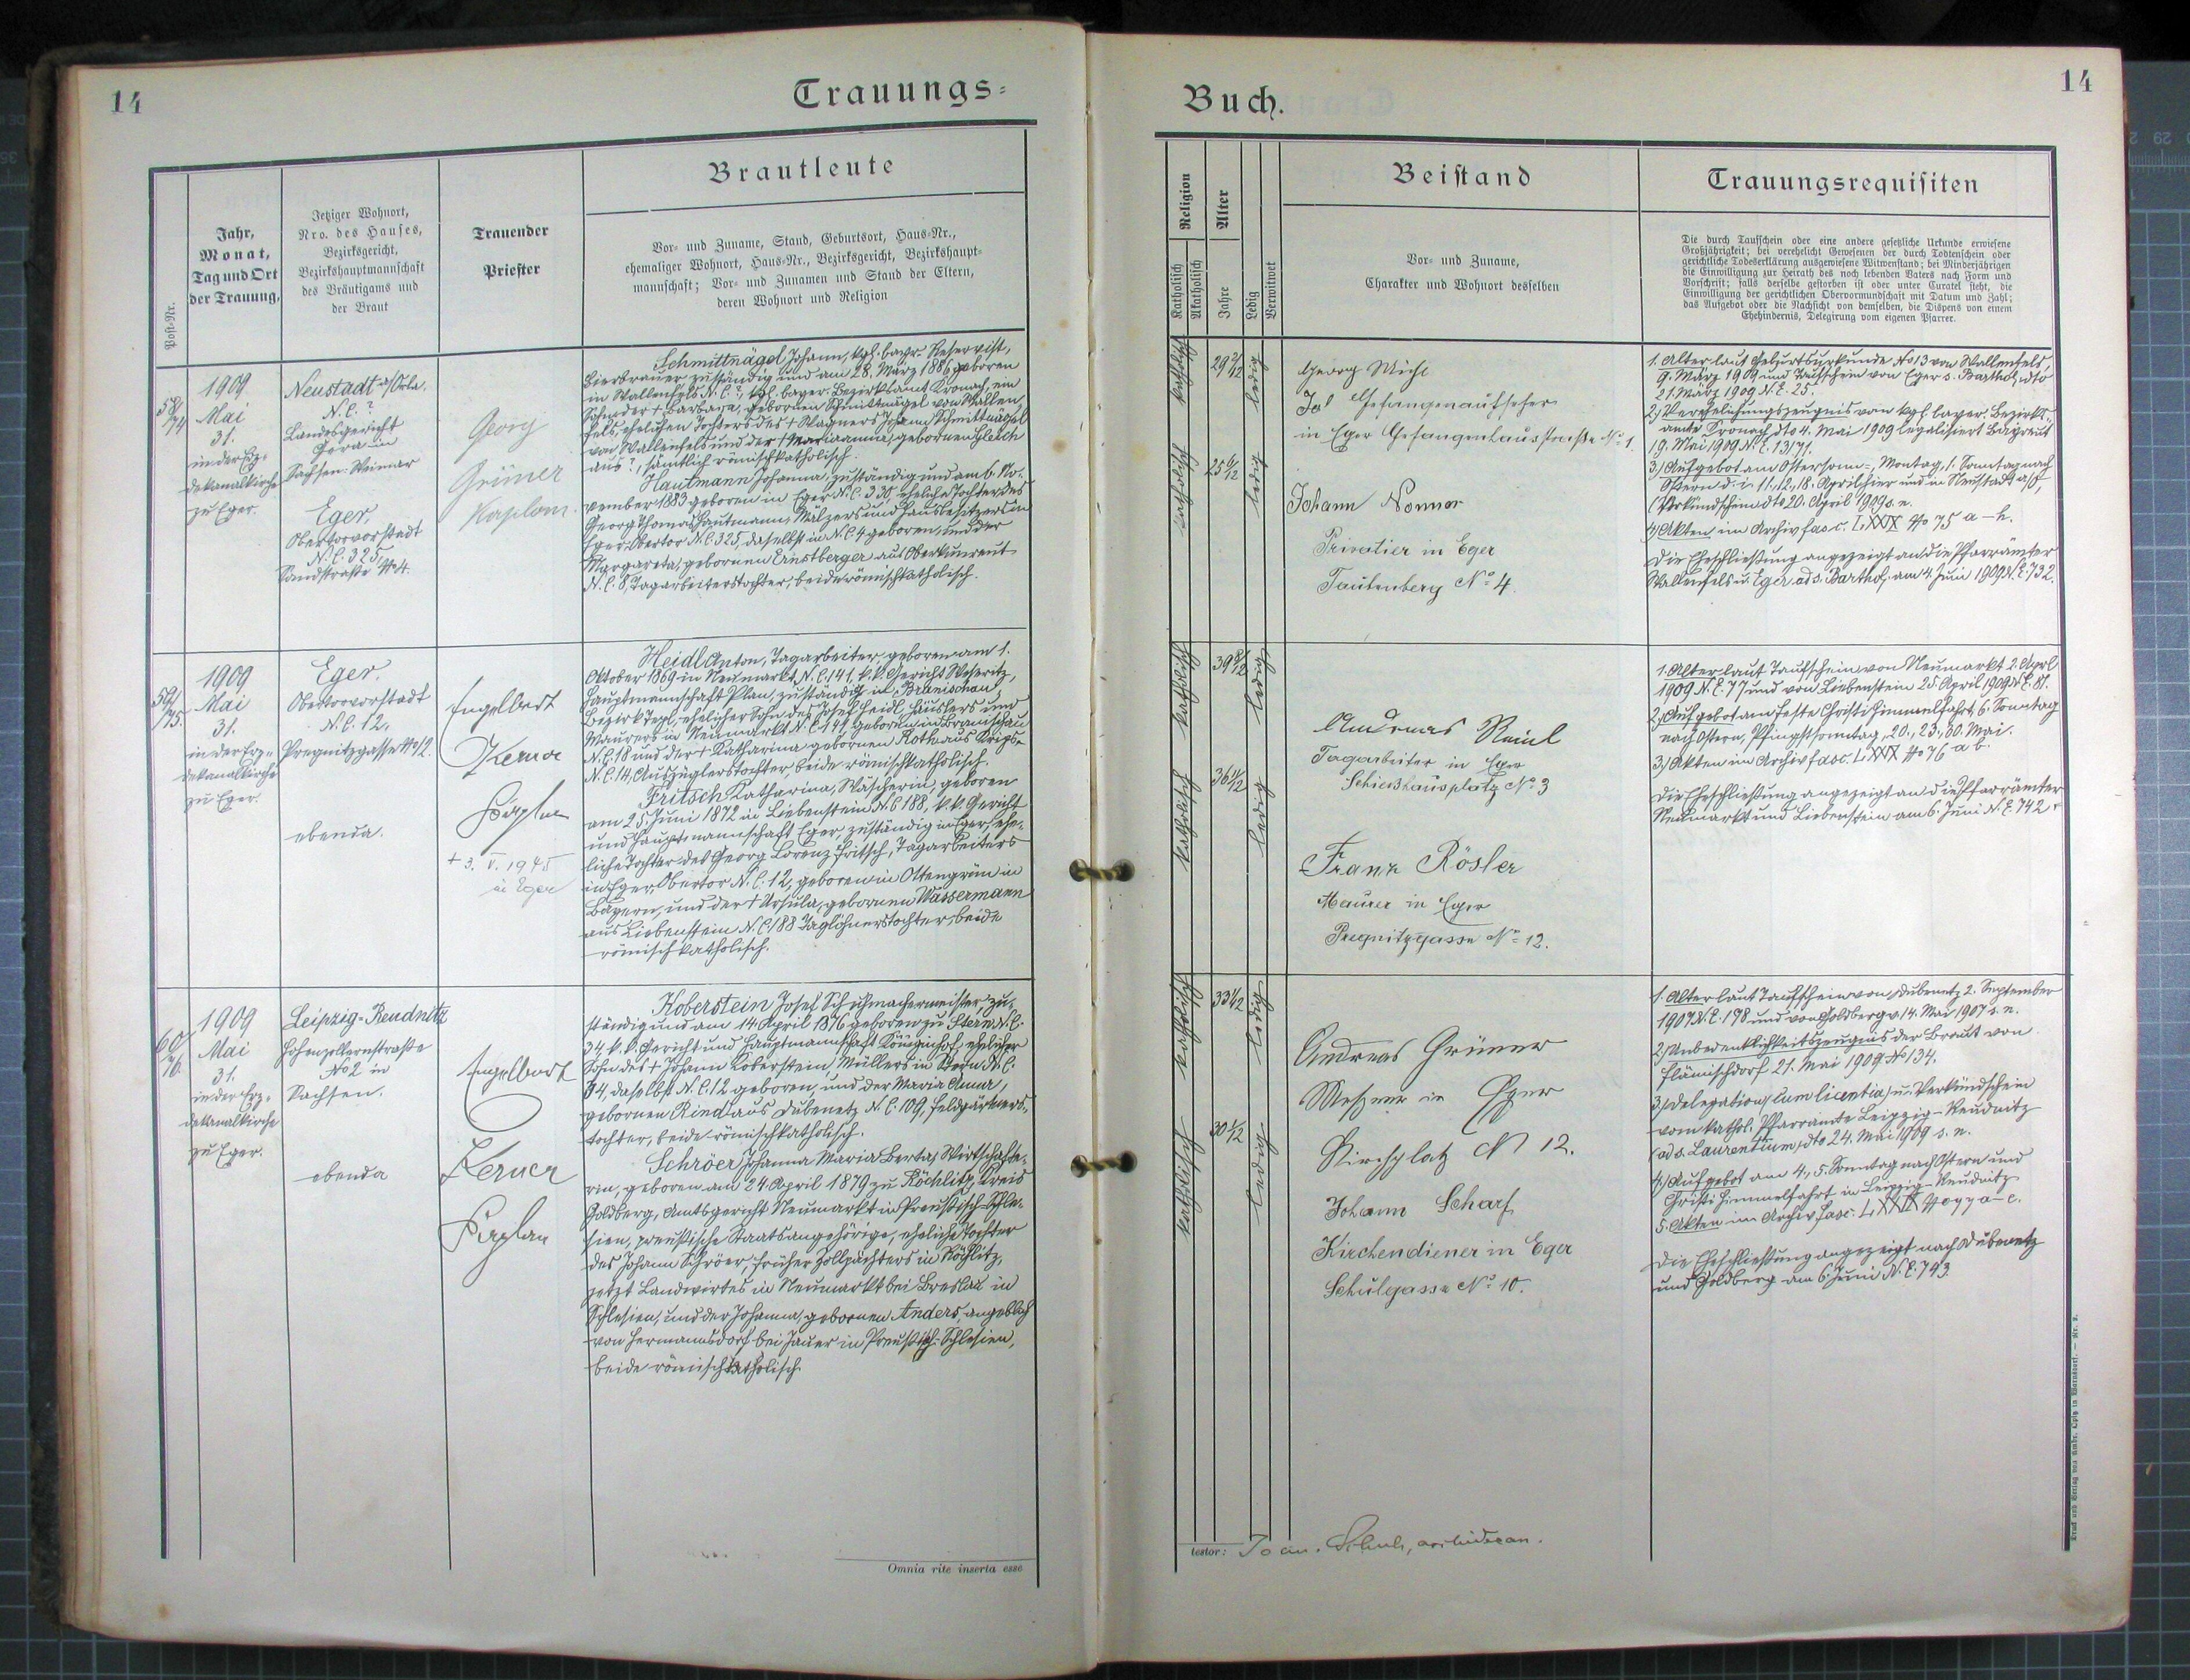 14
Trauungs=
Post-Nr.
Jahr,
Monat,
Tag und Ort
der Trauung.
Jetziger Wohnort,
Nro. des Hauses,
Bezirksgericht,
Bezirkshauptmannschaft
des Bräutigams und
der Braut
Trauender
Priester
Brautleute
Vor- und Zuname, Stand, Geburtsort, Haus-Nr.,
ehemaliger Wohnort, Haus-Nr., Bezirksgericht, Bezirkshaupt-
mannschaft; Vor- und Zunamen und Stand der Eltern,
deren Wohnort und Religion
58/74
1909.
Mai
31.
in der Erz-
dekanalkirche
zu Eger.
Neustadt a/Orla.
N.C. ?
Landesgericht
Gera in
Sachsen-Weimar
Eger,
Obertorvorstadt
N.C. 325,
Sandstraße No 4.
Georg
Grüner
Kaplan.
Schmittnägel Johann, kgl. bayr. Reservist,
Bierbrauer, zuständig und am 28. März 1886 geboren
in Wallenfels N.C. ?, kgl. bayer. Bezirksamt Kronach, ein
Sohn der + Barbara, gebornen Schmittnägel von Wallen-
fels, ehelichen Tochter des + Wagners Johann Schmittnägel
von Wallenfels und der + Mariaanna, gebornen Gleich
aus ?, sämtlich römischkatholisch.
Hautmann Johanna, zuständig und am 6. No-
vember 1883 geboren in Eger N.C. 330, eheliche Tochter des
Georg Thomas Hautmann, Mälzers und Hausbesitzers in
Eger Obertor N.C. 325, daselbst in N.C. 4 geboren, und der
Margareta, gebornen Ernstberger aus Oberkunreut
N.C. 8, Tagarbeiterstochter, beide römischkatholisch.
59/75.
1909
Mai
31.
in der Erz-
dekanalkirche
zu Eger.
Eger.
Obertorvorstadt
N.C. 12,
Pregnitzgasse No 12.
ebenda.
Engelbert
Kerner
Kaplan
+ 3. V. 1945
in Eger
Heidl Anton, Tagarbeiter, geboren am 1.
Oktober 1869 in Neumarkt N.C. 141, k.k. Gericht Weseritz,
Hauptmannschaft Plan, zuständig in Branischau,
Bezirk Tepl, ehelicher Sohn des Josef Heidl, Häuslers und
Maurers in Neumarkt N.C. 141, geboren in Branischau
N.C. 18 und der + Katharina gebornen Roth aus
N.C. 14, Auszüglerstochter, beide römischkatholisch.
Fritsch Katharina, Wäscherin, geboren
am 25. Juni 1872 in Liebenstein N.C. 188, k.k. Gericht
und Hauptmannschaft Eger, zuständig in Eger, ehe-
liche Tochter des Georg Lorenz Fritsch, Tagarbeiters
in Eger Obertor N.C. 12, geboren in Ottengrün in
Bayern, und der + Ursula, gebornen Wassermann
aus Liebenstein N.C. 188 Taglöhnerstochter, beide
römischkatholisch.
60/76.
1909
Mai
31.
in der Erz-
dekanalkirche
zu Eger.
Leipzig-Reudnitz
Hohenzollernstraße
No 2 in
Sachsen.
ebenda
Engelbert
Kerner
Kaplan
Koberstein Josef, Schuhmachermeister, zu-
ständig und am 14. April 1876 geboren zu Stern N.C.
34, k.k. Gericht und Hauptmannschaft Königinhof, ehelicher
Sohn des + Johann Koberstein, Müllers in Stern N.C.
34, daselbst N.C. 12 geboren, und der Maria Anna,
gebornen Rindt aus Dubenetz N.C. 109, Feldgärtners-
tochter, beide römischkatholisch.
Schröer Johanna Maria Berta, Wirtschafte-
rin, geboren am 24. April 1879 zu Röchlitz, Kreis
Goldberg, Amtsgericht Neumarkt in Preußisch-Schle-
sien, preußische Staatsangehörige, eheliche Tochter
des Johann Schröer, früher Zollpächters in Röchlitz,
jetzt Landwirtes in Neumarkt bei Breslau in
Schlesien, und der Johanna, gebornen Anders, angeblich
von Hermannsdorf bei Jauer in Preußisch-Schlesien,
beide römischkatholisch.
Omnia rite inserta esse
Buch.
14
Religion
Katholisch
Akatholisch
Alter
Jahre
Ledig
Verwitwet
Beistand
Vor- und Zuname,
Charakter und Wohnort desselben
Trauungsrequisiten
Die durch Taufschein oder eine andere gesetzliche Urkunde erwiesene
Großjährigkeit; bei verehelicht Gewesenen der durch Todtenschein oder
gerichtliche Todeserklärung ausgewiesene Witwenstand; bei Minderjährigen
die Einwilligung zur Heirath des noch lebenden Vaters nach Form und
Vorschrift; falls derselbe gestorben ist oder unter Curatel steht, die
Einwilligung der gerichtlichen Obervormundschaft mit Datum und Zahl;
das Aufgebot oder die Nachsicht von demselben, die Dispens von einem
Ehehindernis, Delegirung vom eigenen Pfarrer.
katholisch
23 2/12
ledig
katholisch
25 6/12
ledig
Georg Michl
Gefangenaufseher
in Eger Gefangenhausstraße No 1.
Johann
Privatier in Eger
Tautenberg No 4.
1. Alter laut Geburtsurkunde No 13 von Wallenfels,
9. März 1909 und Taufschein von Eger s. Barthol. dto
21. März 1909 N.E. 25.
2.) Verehelichungszeugnis vom kgl. bayer. Bezirks-
amte Kronach dto 4. Mai 1909 legalisiert Bayreut
19. Mai 1909 N.E. 13171.
3.) Aufgebot am Ostersonn-, Montag, 1. Sonntag nach
Ostern d. i. 11., 12., 18. April hier und in Neustadt a/O,
(Verkündschein dto 20. April 1909 s. n.
4.) Akten im Archiv fasc. LXXIX No 75 a-h.
Die Eheschließung angezeigt an die Pfarrämter
Wallenfels u. Eger ad s. Barthol. am 4. Juni 1909 N.E. 732.
katholisch
39 8/12
ledig
katholisch
36 11/12
ledig
Andreas Reinl
Tagarbeiter in Eger
Schießhausplatz No 3
Franz Rösler
Maurer in Eger
Pregnitzgasse No 12.
1. Alter laut Taufschein von Neumarkt 2. April
1909 N.E. 77 und von Liebenstein 25. April 1909 N.E. 81.
2.) Aufgebot am Feste Christi Himmelfahrt, 6. Sonntag
nach Ostern, Pfingstsonntag, 20., 23., 30. Mai.
3.) Akten im Archiv fasc. LXXIX No 76 a b.
Die Eheschließung angezeigt an die Pfarrämter
Neumarkt und Liebenstein am 6. Juni N.E. 742.
katholisch
33 1/12
ledig
katholisch
30 1/12
ledig
Andreas Grüner
Mesner in Eger
Kirchplatz N 12.
Johann Scharf
Kirchendiener in Eger
Schulgasse No 10.
1. Alter laut Taufschein von Dubenetz 2. September
1907 N.E. 198 und von Goldberg v. 14. Mai 1907 s. n.
2.) Unbedenklichkeitszeugnis der Braut von
Flämischdorf 21. Mai 1909 No 134.
3.) Delegation (cum licentia) u. Verkündschein
vom kathol. Pfarramte Leipzig-Reudnitz
(ad s. Laurentium) dto 24. Mai 1909 s. n.
4.) Aufgebot am 4., 5. Sonntag nach Ostern und
Christi Himmelfahrt in Leipzig-Reudnitz
5. Akten im Archiv fasc. LXXIX No 77 a-c.
Die Eheschließung angezeigt nach Dubenetz
und Goldberg am 6. Juni N.E. 743.
testor: Joan. archidecan.
Druck und Verlag von Ambr. Opitz in Warnsdorf. — Nr. 9.